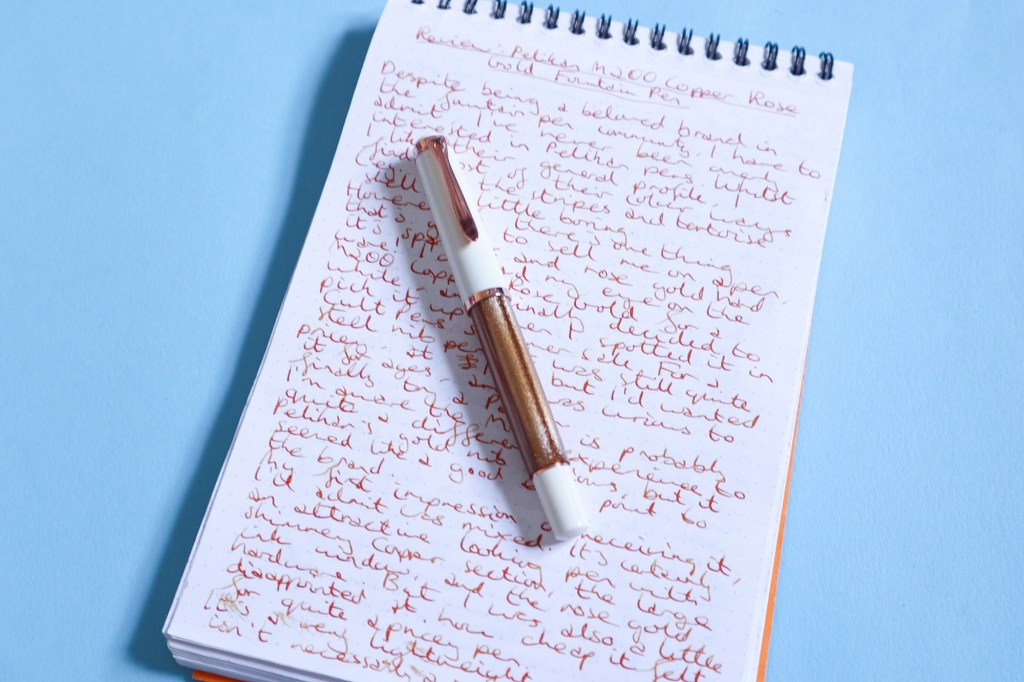 Review: Pelikan M200 Copper Rose
Gold Fountain Pen
Despite being a beloved brand in
the fountain pen community, I have to
admit I've never been overly
interested in Pelikan pens. Whilst
I like their general profile,
of their colour ways
the stripes and tortoise
However, little boring.
that's there's one thing
to sell me on a pen,
it's and rose gold hard
ware, my eye on the
M200 Copper Rose Gold for a
while and finally decided to
pick it up when I spotted it in
Cult Pens summer sale. For a
steel nib pen, was still quite
pricey, at but I'd wanted
it for ages, and was curious to
finally try a
I'm aware the is probably
quite a different experience to
Pelikan's gold nib but it
seemed like a good point to
the brand.
My first impression on receiving it,
I'd admit was mixed. It's certainly
an attractive looking pen with
shimmery copper section, the large
ink window, and the rose gold
hardware. But I was also a little
disappointed at how cheap it felt
for quite a pricey pen.
It's very lightweight
isn't necessarily